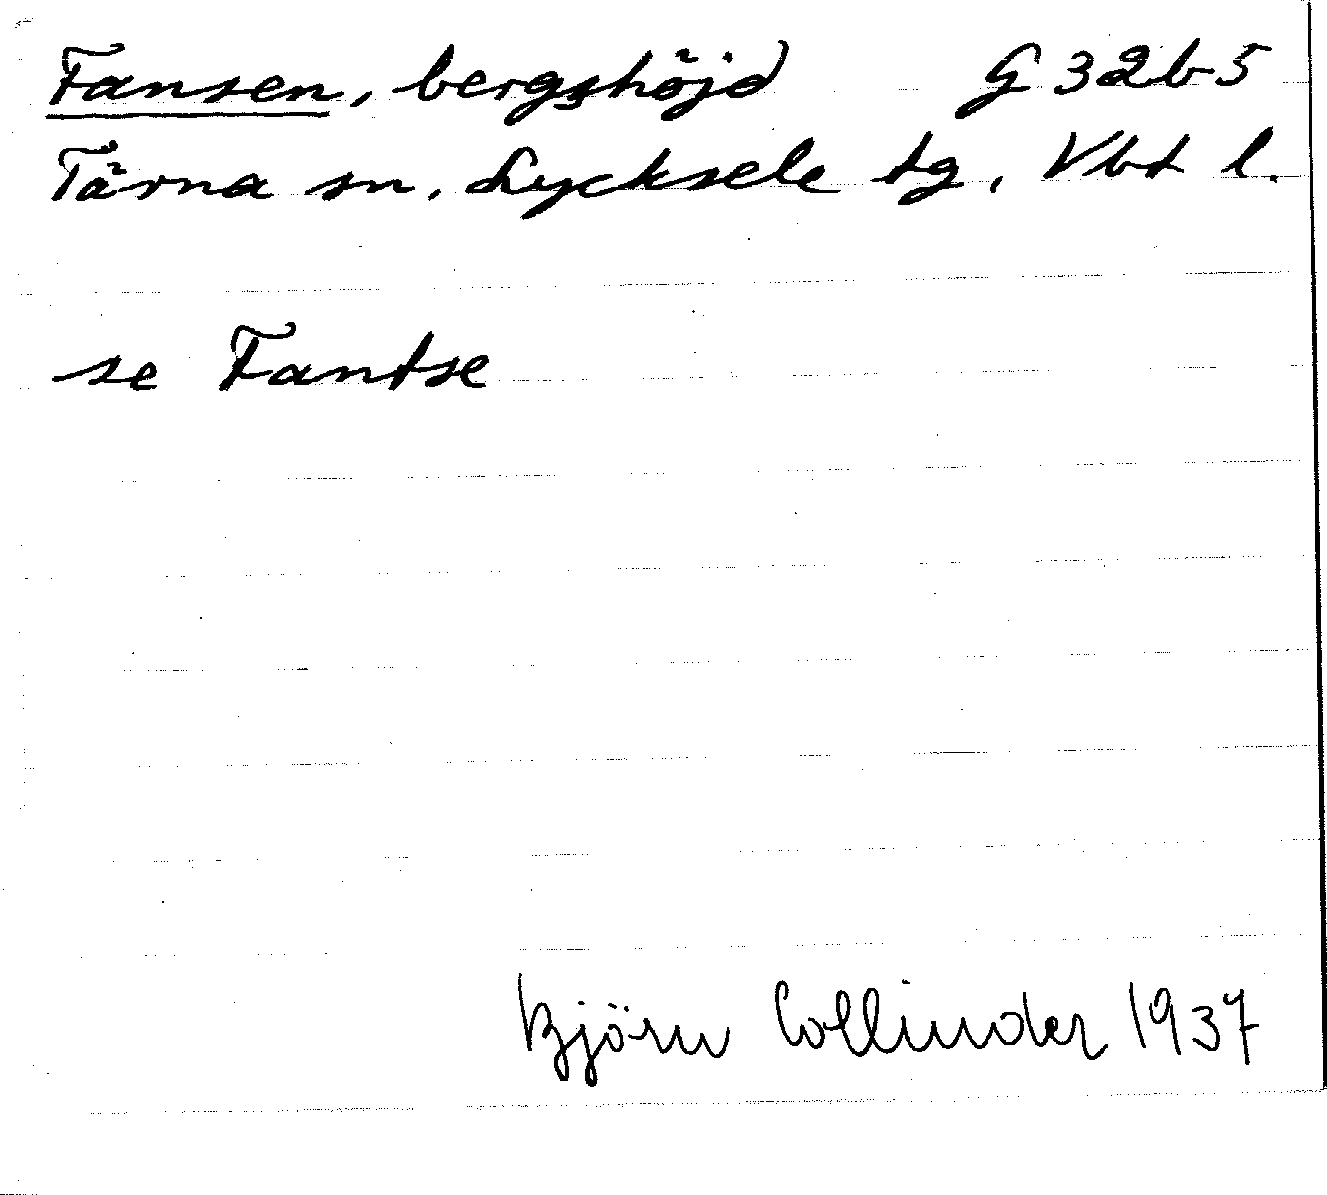 Fansen, bergshöjd G 32 b 5
Tärna sn, Lycksele tg, Vbt l.
se Fantse
Björn Collinder 1937